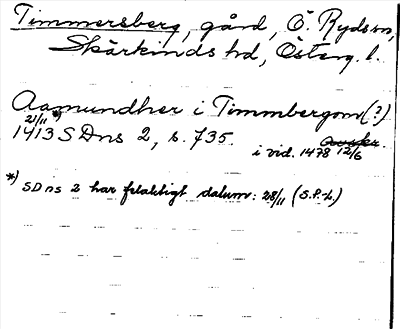 Timmersberg, gård, Ö. Ryds sn,
Skärkinds hd, Österg. l.
Aamundher i Timmbergom (?)
21/11 *)
1413 SDns 2, s. 735.
i vid. 1478 12/6
*) SDns 2 har felaktigt datum: 28/11 (S.P-L.)